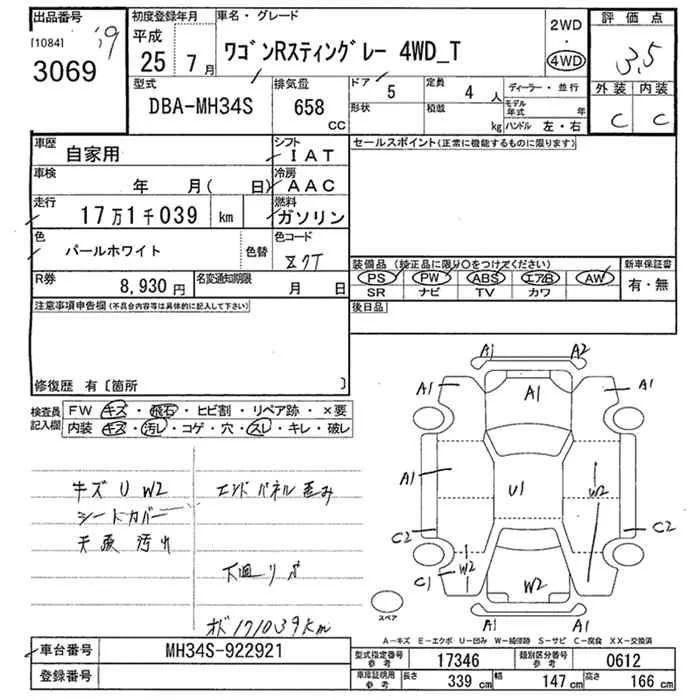 出品番号
[1084]
19
3069
初度登録年月
平成
25 7月
車名・グレード
ワゴンRスティングレー 4WD_T
2WD
・
4WD
評価点
3.5
外装 内装
C C
型式
DBA-MH34S
排気量
658
CC
ドア
5
形状
定員
4 人
積載
kg
ディーラー・並行
モデル年式 年
ハンドル 左・右
車歴
自家用
シフト
IAT
セールスポイント(正常に機能するものに限ります)
車検
年 月( 日)
冷房
AAC
走行
17万1千039 km
燃料
ガソリン
色
パールホワイト
色替
色コード
Z7T
装備品 (純正品に限り○をつけてください)
PS PW ABS エアB AW
SR ナビ TV カワ
新車保証書
有・無
R券
8,930円
名変通知期限
月 日
後日品
注意事項申告欄(不具合内容等は具体的に記入して下さい)
修復歴 有〔箇所 〕
検査員記入欄
FW キズ・飛石・ヒビ割・リペア跡・×要
内装 キズ・汚レ・コゲ・穴・スレ・キレ・破レ
キズ U W2
シートカバー
天張 汚れ
エンドパネル歪み
下回りサビ
オド 171039km
A1 A2
A1 A1 A1
A1 U1 W2
C2 C2
C1 W2 W2
A1 A1
スペア
A-キズ E-エクボ U-凹み W-補修跡 S-サビ C-腐食 XX-交換済
車台番号
MH34S-922921
登録番号
型式指定番号
参考
17346
類別区分番号
参考
0612
車庫証明用
参考
長さ 339 cm 幅 147 cm 高さ 166 cm